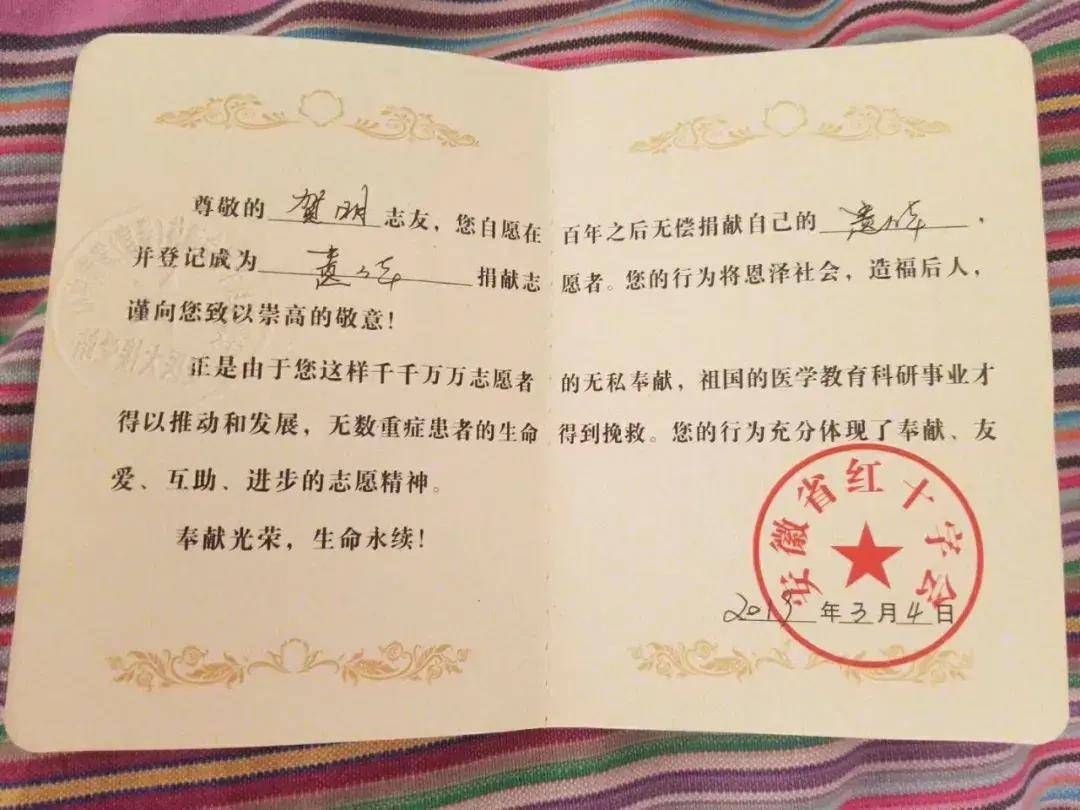 尊敬的 贺明 志友，您自愿在百年之后无偿捐献自己的 遗体，
并登记成为 遗体 捐献志愿者。您的行为将恩泽社会，造福后人，
谨向您致以崇高的敬意！
正是由于您这样千千万万志愿者的无私奉献，祖国的医学教育科研事业才
得以推动和发展，无数重症患者的生命得到挽救。您的行为充分体现了奉献、友
爱、互助、进步的志愿精神。
奉献光荣，生命永续！
安徽省红十字会
2019年3月4日